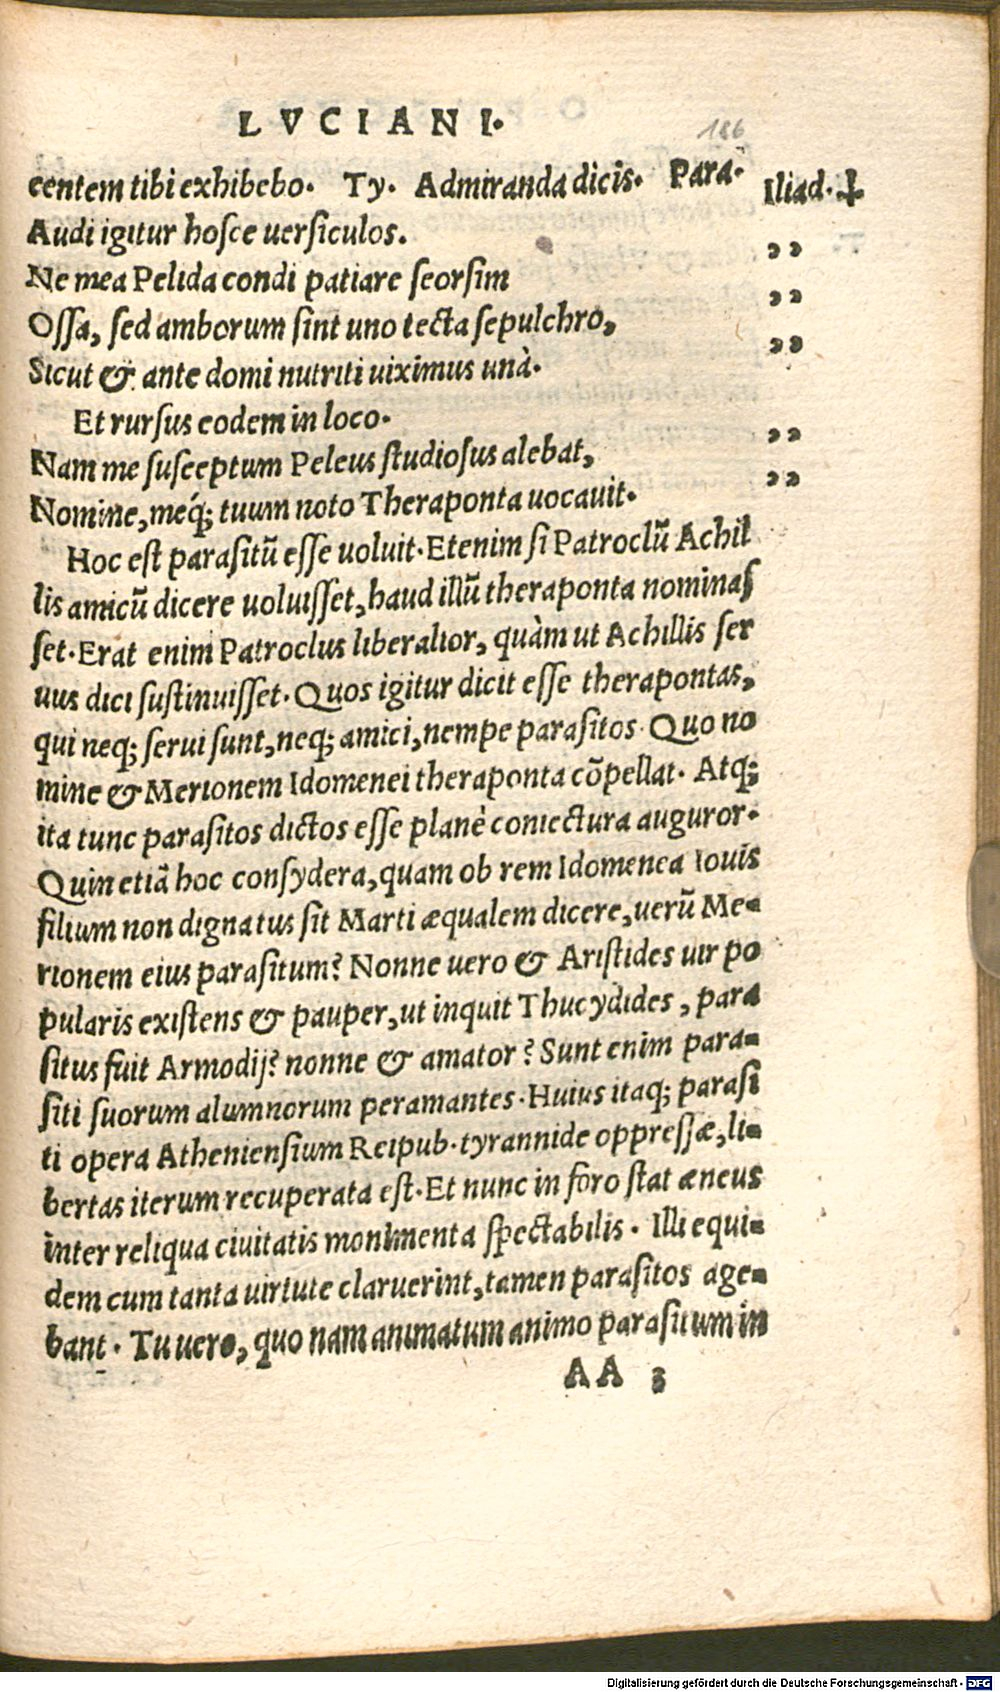 LVCIANI.
186
centem tibi exhibebo. Ty. Admiranda dicis. Para.
Iliad. ☩
Audi igitur hosce uersiculos.
Ne mea Pelida condi patiare seorsim
Ossa, sed amborum sint uno tecta sepulchro,
Sicut & ante domi nutriti uiximus unà.
Et rursus eodem in loco.
Nam me susceptum Peleus studiosus alebat,
Nomine, meq́; tuum noto Theraponta uocauit.
Hoc est parasitū esse uoluit. Etenim si Patroclū Achil
lis amicū dicere uoluisset, haud illū theraponta nominas
set. Erat enim Patroclus liberalior, quàm ut Achillis ser
uus dici sustinuisset. Quos igitur dicit esse therapontas,
qui neq; serui sunt, neq; amici, nempe parasitos. Quo no
mine & Merionem Idomenei theraponta cõpellat. Atq;
ita tunc parasitos dictos esse planè coniectura auguror.
Quin etiã hoc consydera, quam ob rem Idomenea Iouis
filium non dignatus sit Marti æqualem dicere, uerū Me-
rionem eius parasitum? Nonne uero & Aristides uir po
pularis existens & pauper, ut inquit Thucydides, para
situs fuit Armodij? nonne & amator? Sunt enim para-
siti suorum alumnorum peramantes. Huius itaq; parasi
ti opera Atheniensium Reipub. tyrannide oppressæ, li-
bertas iterum recuperata est. Et nunc in foro stat æneus
inter reliqua ciuitatis monimenta spectabilis. Illi equi-
dem cum tanta uirtute claruerint, tamen parasitos age-
bant. Tu uero, quo nam animatum animo parasitum in
AA 3
Digitalisierung gefördert durch die Deutsche Forschungsgemeinschaft - DFG